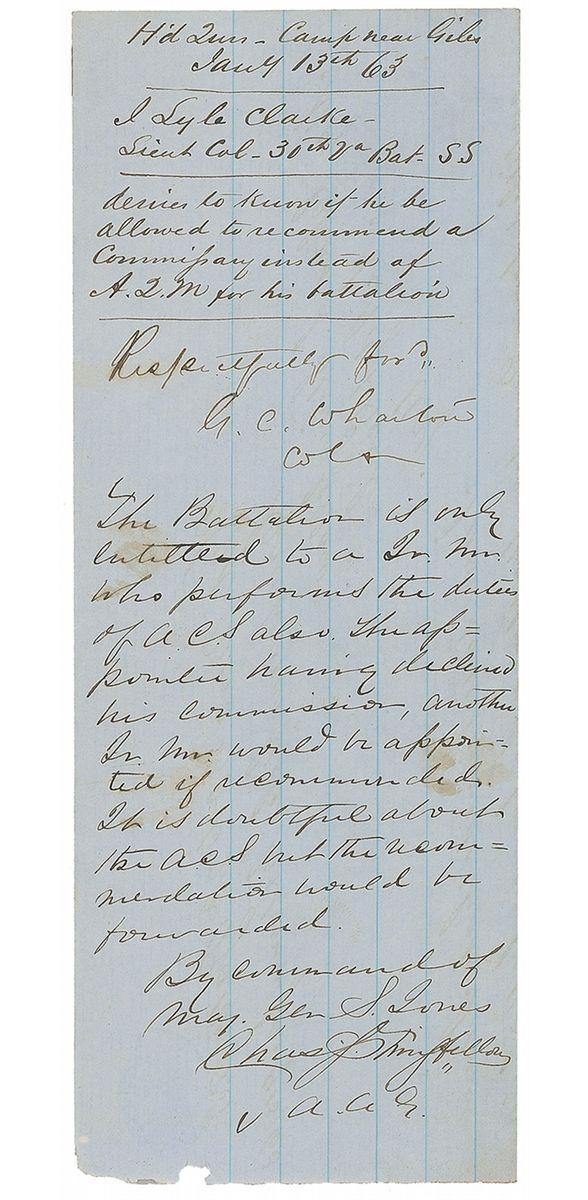 Hd Qurs - Camp near Giles
Jany 13th 63
J Lyle Clarke -
Lieut Col - 30th Va Bat - S S
desires to know if he be
allowed to recommend a
Commissary instead of
A. Q. M for his battalion
Respectfully ford,,
G. C. Wharton
Col
The Battalion is only
entitled to a Qr. Mr.
who performs the duties
of A.C.S also. The ap=
pointee having declined
his commission, another
Qr. Mr. would be appoin=
ted if recommended.
It is doubtful about
the A.C.S but the recom=
mendation would be
forwarded.
By command of
Maj. Gen S. Jones
Chas. S. Stringfellow
A. A. G.